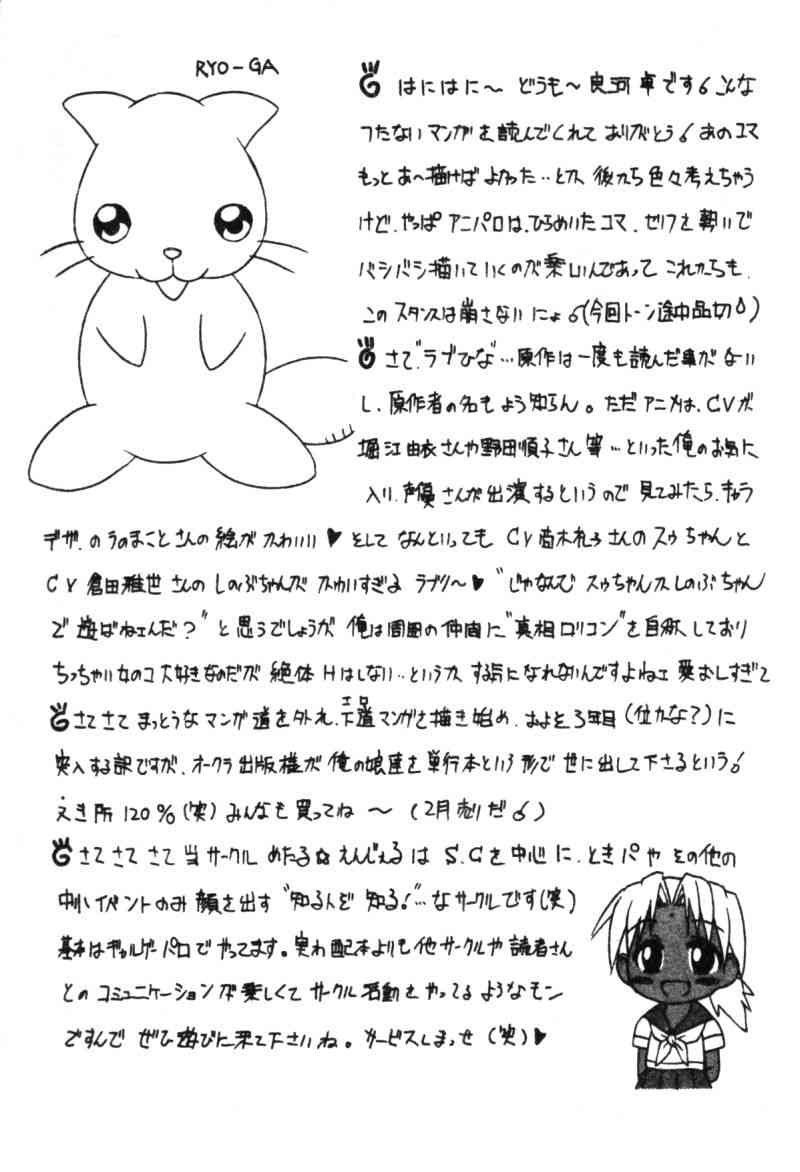 RYO-GA
はにはに〜 どうも〜 良河卓です。こんな
つたないマンガを読んでくれてありがとう。あのコマ
もっとあ〜描けばよかった…とか、後から色々考えちゃう
けど、やっぱアニパロは、ひらめいたコマ、セリフを勢いで
バシバシ描いていくのが楽しいんであって これからも、
このスタンスは崩さないにょ。(今回トーン途中品切)
さて、ラブひな…原作は一度も読んだ事がない
し、原作者の名もよう知らん。ただアニメは、CVが
堀江由衣さんや野田順子さん等…といった俺のお気に
入り、声優さんが出演するというので見てみたら、キャラ
デザ、のうのまことさんの絵がかわいい♥ そして なんといっても CV高木礼子さんのスゥちゃんと
CV倉田雅世さんのしのぶちゃんがかわいすぎる ラブリ〜♥ “じゃなんで スゥちゃんかしのぶちゃん
で遊ばねェんだ?”と思うでしょうが 俺は周囲の仲間に“真相ロリコン”を自称しており
ちっちゃい女のコ大好きなのだが 絶体Hはしない…というか、する気になれないんですよねェ 愛おしすぎて
さてさて まっとうなマンガ道を外れ、下道マンガを描き始め、およそ3年目(位かな?)に
エロ
突入する訳ですが、オークラ出版様が俺の娘達を単行本という形で世に出して下さるという。
描き所120%(笑) みんなも買ってね 〜 (2月売りだ。)
さてさてさて 当サークル めたる☆えんじぇるは S.Cを中心に、ときパや その他の
中小イベントのみ顔を出す“知る人ぞ知る!”…なサークルです(笑)
基本はギャルゲーパロでやってます。実わ配本よりも他サークルや読者さん
とのコミュニケーションが楽しくてサークル活動をやってるようなモン
ですんで ぜひ遊びに来て下さいね。サービスしまっせ(笑)♥